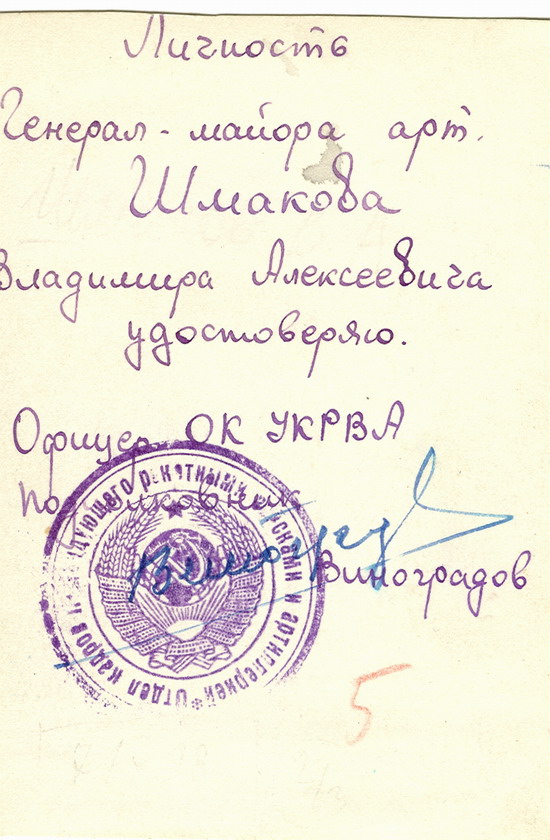 Личность
Генерал-майора арт.
Шмакова
Владимира Алексеевича
удостоверяю.
Офицер ОК УКРВА
подполковник
Виноградов
Отдел кадров ракетными войсками и артиллерией
5